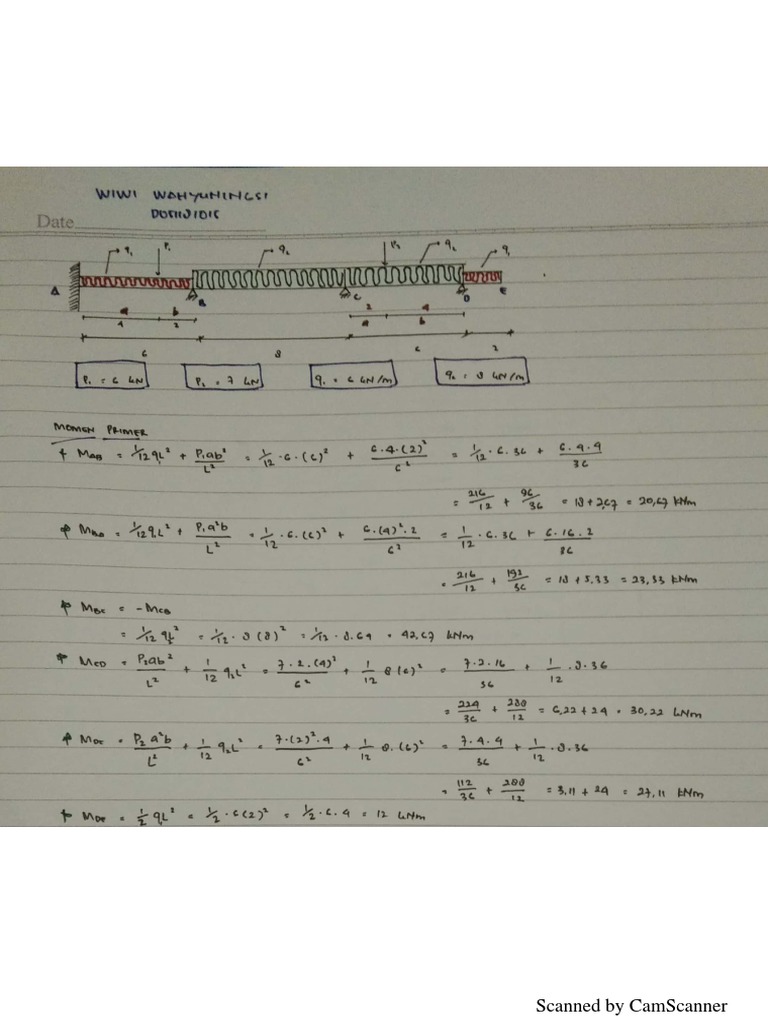 WIWI WAHYUNINGSI
Date
q₁ P₁ q₂ P₂ q₂ q₁
A B C D E
a b 2 4
4 2 a b
6 8 6 2
P₁ = 6 kN P₂ = 7 kN q₁ = 6 kN/m q₂ = 8 kN/m
MOMEN PRIMER
MAB = 1/12 q₁L² + P₁ab²/L² = 1/12 · 6 · (6)² + 6.4.(2)²/6² = 1/12 · 6 . 36 + 6.4.4/36
= 216/12 + 96/36 = 18 + 2,67 = 20,67 kNm
MBA = 1/12 q₁L² + P₁a²b/L² = 1/12 · 6 . (6)² + 6.(4)².2/6² = 1/12 · 6 . 36 + 6.16.2/36
= 216/12 + 192/36 = 18 + 5,33 = 23,33 kNm
MBC = -MCB
= 1/12 q₂L² = 1/12 · 8 (8)² = 1/12 . 8.64 = 42,67 kNm
MCD = P₂ab²/L² + 1/12 q₂L² = 7.2.(4)²/6² + 1/12 8(6)² = 7.2.16/36 + 1/12 .8.36
= 224/36 + 288/12 = 6,22 + 24 = 30,22 kNm
MDC = P₂a²b/L² + 1/12 q₂L² = 7.(2)².4/6² + 1/12 8.(6)² = 7.4.4/36 + 1/12 .8.36
= 112/36 + 288/12 = 3,11 + 24 = 27,11 kNm
MDE = 1/2 q₁L² = 1/2 · 6(2)² = 1/2 · 6 . 4 = 12 kNm
Scanned by CamScanner